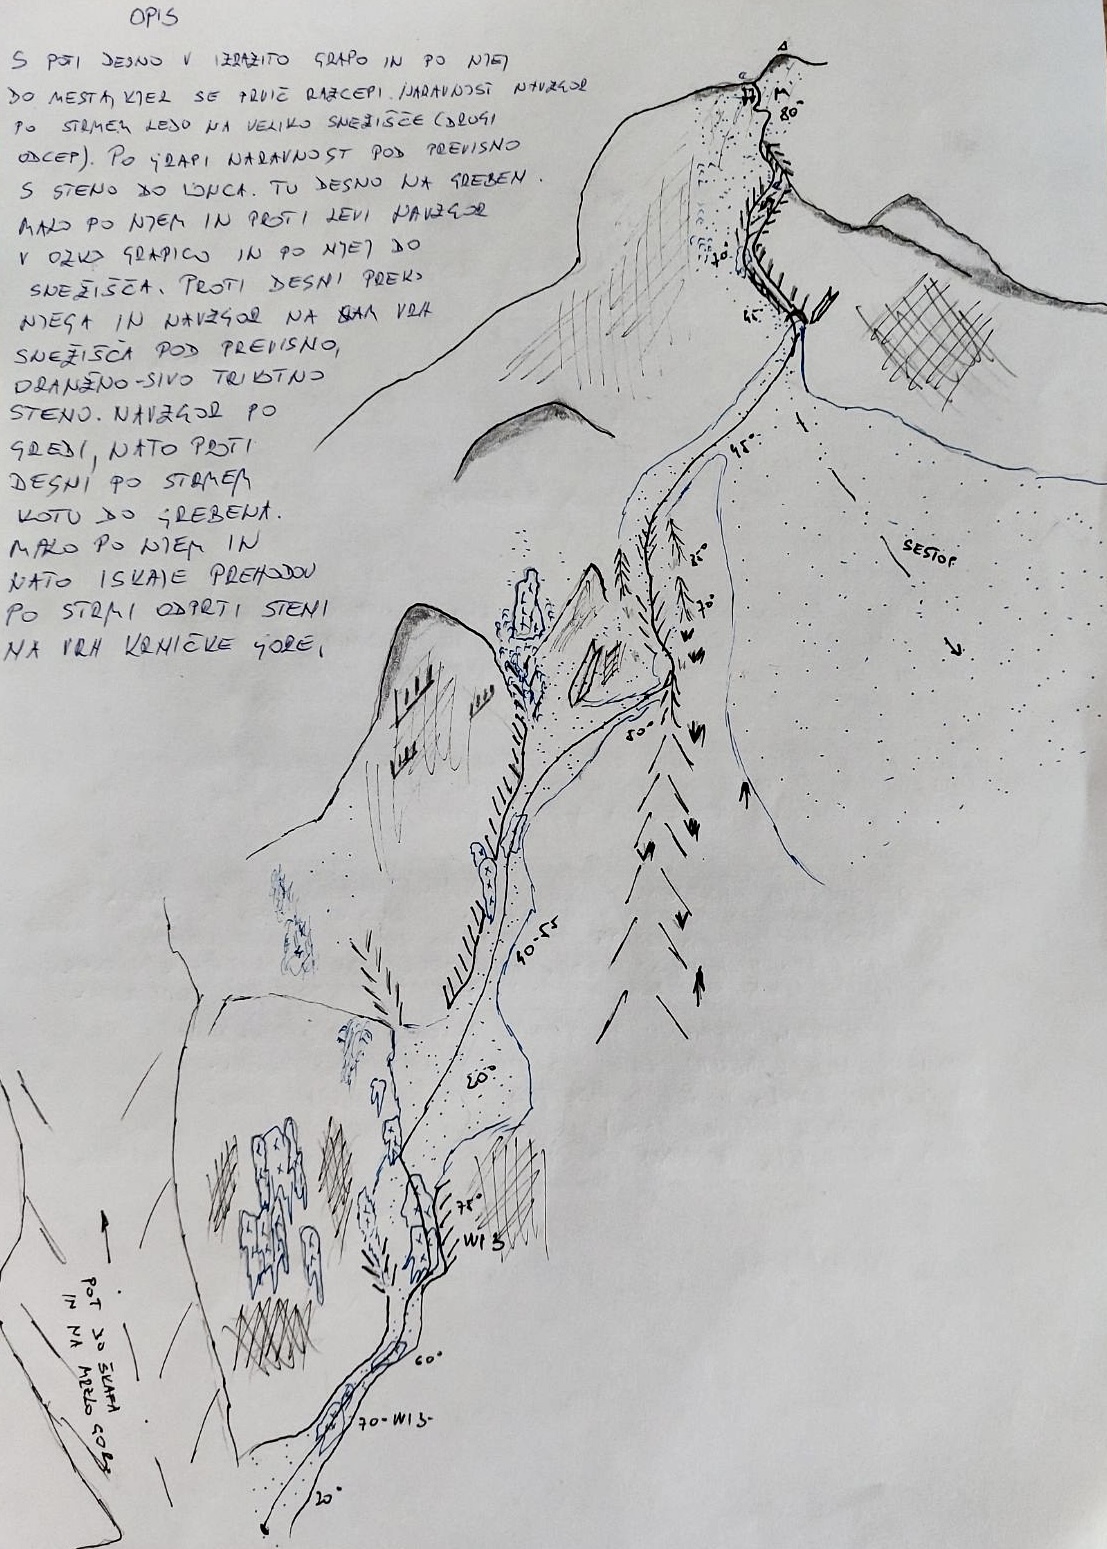 OPIS
S POTI DESNO V IZRAZITO GRAPO IN PO NJEJ
DO MESTA, KJER SE PRVIČ RAZCEPI. NARAVNOST NAVZGOR
PO STRMEM LEDU NA VELIKO SNEŽIŠČE (DRUGI
ODCEP). PO GRAPI NARAVNOST POD PREVISNO
S STENO DO LONCA. TU DESNO NA GREBEN.
MALO PO NJEM IN PROTI LEVI NAVZGOR
V OZKO GRAPICO IN PO NJEJ DO
SNEŽIŠČA. PROTI DESNI PREKO
NJEGA IN NAVZGOR NA SAM VRH
SNEŽIŠČA POD PREVISNO,
ORANŽNO-SIVO TRIKOTNO
STENO. NAVZGOR PO
GREDI, NATO PROTI
DESNI PO STRMEM
KOTU DO GREBENA.
MALO PO NJEM IN
NATO ISKAJE PREHODOV
PO STRMI ODPRTI STENI
NA VRH KRNIČKE GORE.
M
80°
70°
45°
45°
SESTOP
70°
50°
40-55
50°
75°
WI 3
60°
70-WI3-
20°
POT DO ŠKAFA
IN NA MRZLO GORO